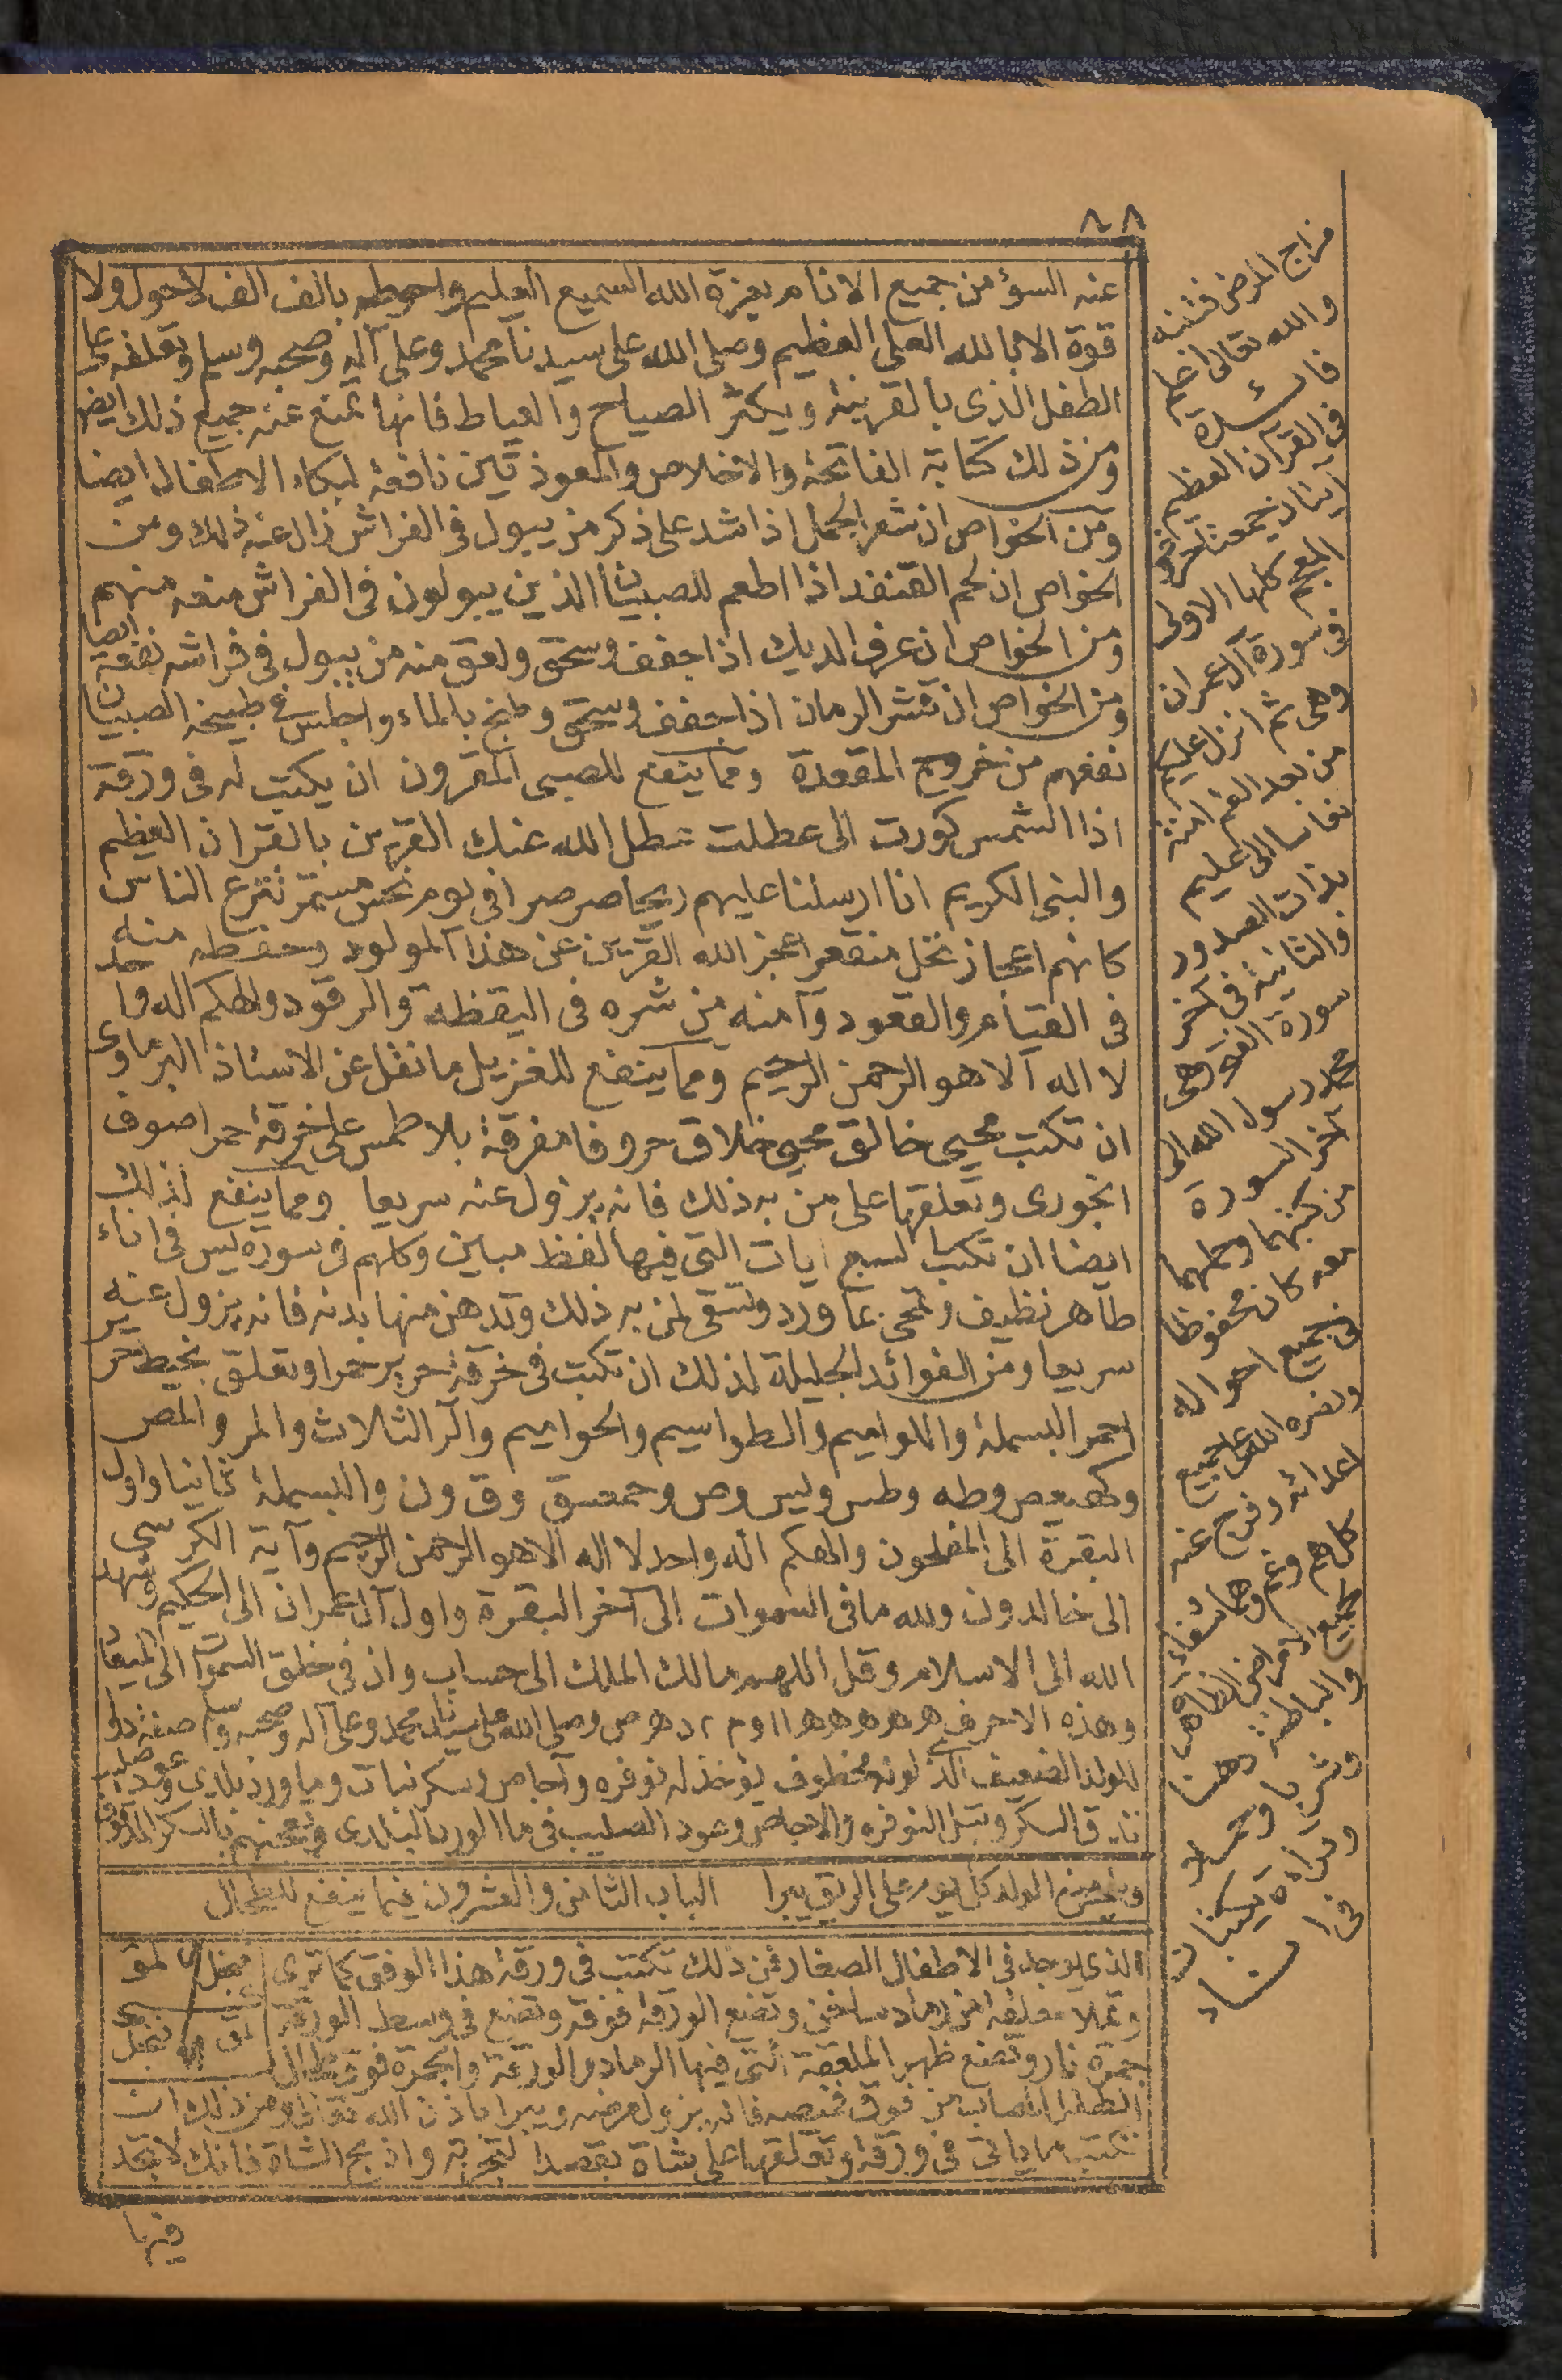 ٨٨
عنه السؤ من جميع الانام بعزة الله السميع العليم واحيطه بالف الف لاحول ولا
قوة الا بالله العلى العظيم وصلى الله على سيدنا محمد وعلى آله وصحبه وسلم وتعلقه على
الطفل الذى بالقرينة ويكثر الصياح والعياط فانها تمنع عنه جميع ذلك ايضا
ومن ذلك كتابة الفاتحة والاخلاص والمعوذتين نافعة لبكاء الاطفال ايضا
ومن الخواص ان شعر الجمل اذا شد على ذكر من يبول فى الفراش زال عنه ذلك ومن
الخواص ان لحم القنفد اذا اطعم للصبيان الذين يبولون فى الفراش منعه منهم
ومن الخواص ان عرف الديك اذا جفف وسحق ولعق منه من يبول فى فراشه نفعه ايضا
ومن الخواص ان قشر الرمان اذا جفف وسحق وطبخ بالماء واجلس فى طبيخه الصبيان
نفعهم من خروج المقعدة ومما ينفع للصبى المقرون ان يكتب له فى ورقة
اذا الشمس كورت الى عطلت عطل الله عنك القرين بالقران العظيم
والنبى الكريم انا ارسلنا عليهم ريحا صرصرا فى يوم نحس مستمر تنزع الناس
كانهم اعجاز نخل منقعر اعجز الله القرين عن هذا المولود وحفظه منه
فى القيام والقعود وآمنه من شره فى اليقظة والرقود والهكم اله واحد
لا اله الا هو الرحمن الرحيم ومما ينفع للغزيل ما نقل عن الاستاذ البرماوى
ان تكتب محيى خالق محيى خلاق حروفا مفرقة بلا طمس على خرقة حمرا صوف
انجورى وتعلقها على من به ذلك فانه يزول عنه سريعا ومما ينفع لذلك
ايضا ان تكتب لسبع ايات التى فيها لفظ مبين وكلهم فى سورة يس فى اناء
طاهر نظيف وتمحى بما ورد وتسقى لمن به ذلك وتدهن منها بدنه فانه يزول عنه
سريعا ومن الفوائد الجليلة لذلك ان تكتب فى خرقة حرير حمرا وتعلق بخيط حرير
احمر البسملة واللواميم والطواسيم والحواميم والر الثلاث والمر والمص
وكهيعص وطه وطس ويس وص وحمعسق وق ون والبسملة ثمانيا واول
البقرة الى المفلحون والهكم اله واحد لا اله الا هو الرحمن الرحيم وآية الكرسى
الى خالدون ولله ما فى السموات الى آخر البقرة واول آل عمران الى الحكيم وشهد
الله الى الاسلام وقل اللهم مالك الملك الى حساب وان فى خلق السموات الى الميعاد
وهذه الاحرف ه ه ه ه ه ه ا ا و م ٢ د ه ص وصلى الله على سيدنا محمد وعلى آله وصحبه وسلم صفة دوا
للولد الضعيف الذى لونه مخطوف يؤخذ له نوفره واجاص وسكر نبات وماورد بلدى وعود صليب
تدق السكر وتبل النوفره والاجاص وعود الصليب فى ما الورد البلدى وتعجنهم بالسكر المدقوق
ويلحس منه الولد كل يوم على الريق يبرا الباب الثامن والعشرون فيما ينفع للطحال
الذى يوجد فى الاطفال الصغار فمن ذلك تكتب فى ورقة هذا الوفق كما ترى
وتملا معلقة من رماد ساخن وتضع الورقة فوقه وتضع فى وسط الورقة
جمرة نار وتضع ظهر الملعقة التى فيها الرماد والورقة والجمرة فوق طحال
الطفل المصاب من فوق قميصه فانه يزول مرضه ويبرا باذن الله تعالى ومن ذلك ان
تكتب ما ياتى فى ورقة وتعلقها على شاة بقصد التجربة واذبح الشاة فانك لا تجد
فيها
مزاج المرض فتنبه
والله تعالى اعلم
فائدة
فى القرآن العظيم
آيتان جمعتا حروف
المعجم كلها الاولى
فى سورة آل عمران
وهى ثم انزل عليكم
من بعد الغم امنة
نعاسا الى عليم
بذات الصدور
والثانية فى آخر
سورة الفتح وهى
محمد رسول الله الى
آخر السورة
من كتبهما وحملهما
معه كان محفوظا
فى جميع احواله
ونصره الله على جميع
اعدائه وفرج عنه
كل هم وغم وهما شفاء
لجميع الامراض الظاهره
والباطنة دهنا
وشربا وحملا
وقراءة